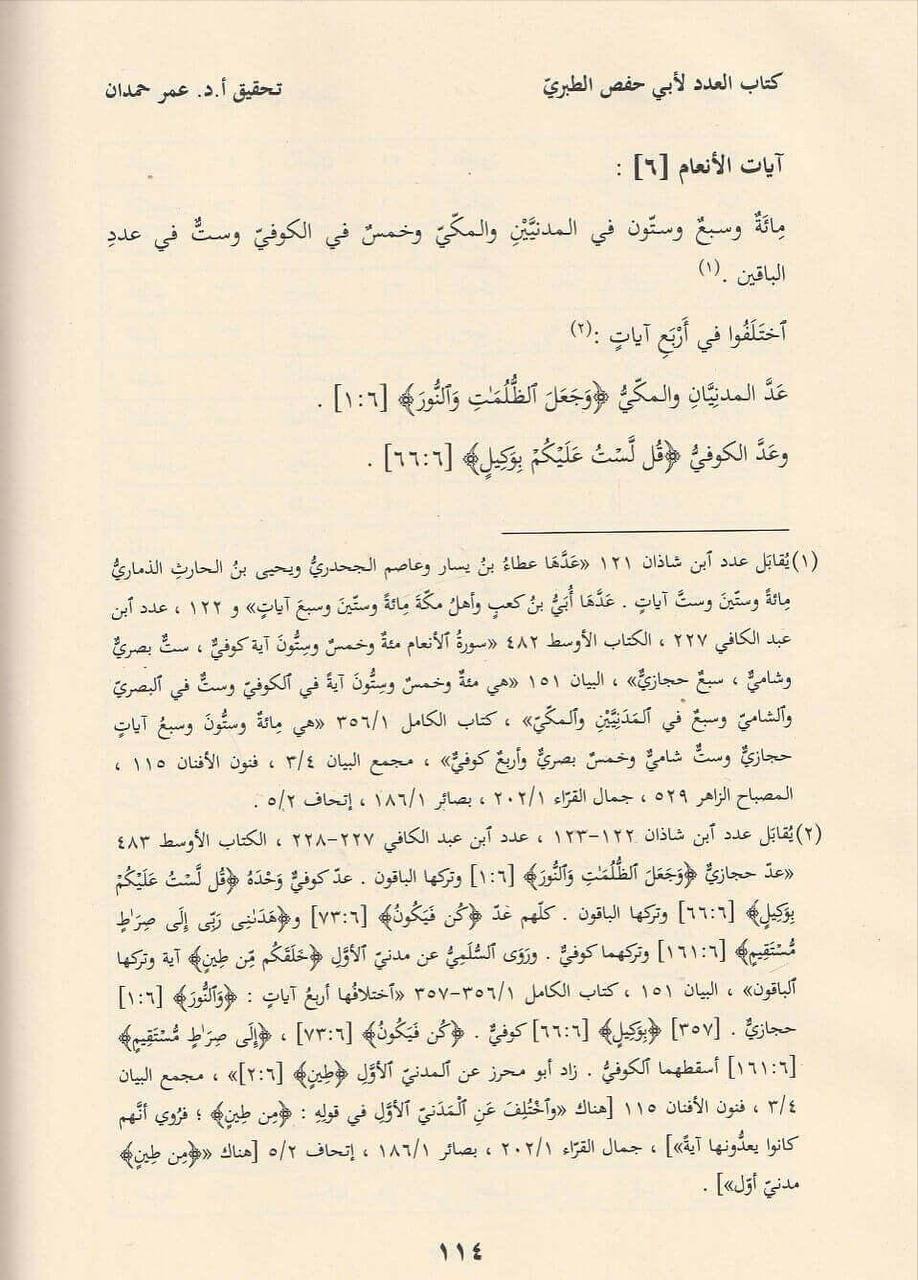 كتاب العدد لأبي حفص الطبريّ
تحقيق أ.د. عمر حمدان
آيات الأنعام [٦] :
مِائَةٌ وسبعٌ وستّون في المدنيَّيْنِ والمكّيّ وخمسٌ في الكوفيّ وستٌّ في عددِ
الباقين .(١)
ٱختَلَفُوا في أَرْبَعِ آياتٍ :(٢)
عَدَّ المدنِيَّانِ والمكّيُّ ﴿وَجَعَلَ ٱلظُّلُمَٰتِ وَٱلنُّورَ﴾ [١:٦] .
وعَدَّ الكوفيُّ ﴿قُل لَّسْتُ عَلَيْكُمْ بِوَكِيلٍ﴾ [٦٦:٦] .
(١) يُقابَل عدد ٱبن شاذان ١٢١ «عَدَّهَا عطاءُ بنُ يسار وعاصم الجحدريُّ ويحيى بنُ الحارثِ الذماريُّ
مِائةً وستّينَ وستَّ آياتٍ . عَدَّهَا أُبَيُّ بنُ كعبٍ وأهلُ مكّةَ مِائةً وستّينَ وسبعَ آياتٍ» و ١٢٢ ، عدد ٱبن
عبد الكافي ٢٢٧ ، الكتاب الأوسط ٤٨٢ «سورةُ ٱلأنعام مئةٌ وخمسٌ وسِتُّونَ آية كوفيٌّ ، ستٌّ بصريٌّ
وشاميٌّ ، سبعٌ حجازيٌّ» ، البيان ١٥١ «هي مئةٌ وخمسٌ وسِتُّونَ آيةً في ٱلكوفيّ وستٌّ في ٱلبصريّ
وٱلشاميّ وسبع في ٱلمَدَنِيَّيْنِ وٱلمكّيّ» ، كتاب الكامل ٣٥٦/١ «هي مِائةٌ وستُّونَ وسبعُ آياتٍ
حجازيٌّ وستٌّ شاميٌّ وخمسٌ بصريٌّ وأربعٌ كوفيٌّ» ، مجمع البيان ٣/٤ ، فنون الأفنان ١١٥ ،
المصباح الزاهر ٥٢٩ ، جمال القرّاء ٢٠٢/١ ، بصائر ١٨٦/١ ، إتحاف ٥/٢ .
(٢) يُقابَل عدد ٱبن شاذان ١٢٢-١٢٣ ، عدد ٱبن عبد الكافي ٢٢٧-٢٢٨ ، الكتاب الأوسط ٤٨٣
«عدّ حجازيٌّ ﴿وَجَعَلَ ٱلظُّلُمَٰتِ وَٱلنُّورَ﴾ [١:٦] وتركها الباقون . عدّ كوفيٌّ وَحْدَهُ ﴿قُل لَّسْتُ عَلَيْكُمْ
بِوَكِيلٍ﴾ [٦٦:٦] وتركها الباقون . كلّهم عَدّ ﴿كُن فَيَكُونُ﴾ [٧٣:٦] و﴿هَدَىٰنِى رَبِّى إِلَى صِرَٰطٍ
مُّسْتَقِيمٍ﴾ [١٦١:٦] وتركهما كوفيٌّ . ورَوَى السُّلَمِيُّ عن مدنيّ ٱلأوَّلِ ﴿خَلَقَكُم مِّن طِينٍ﴾ آية وتركها
ٱلباقون» ، البيان ١٥١ ، كتاب الكامل ٣٥٦/١-٣٥٧ «ٱختلافُها أربعُ آياتٍ : ﴿وَٱلنُّورَ﴾ [١:٦]
حجازيٌّ . [٣٥٧] ﴿بِوَكِيلٍ﴾ [٦٦:٦] كوفيٌّ . ﴿كُن فَيَكُونُ﴾ [٧٣:٦] ، ﴿إِلَى صِرَٰطٍ مُّسْتَقِيمٍ﴾
[١٦١:٦] أسقطهما ٱلكوفيُّ . زاد أبو محرز عن ٱلمدنيّ ٱلأوَّل ﴿طِينٍ﴾ [٢:٦]» ، مجمع البيان
٣/٤ ، فنون الأفنان ١١٥ [هناك «وٱخْتُلِفَ عَنِ ٱلْمَدَنيّ ٱلأوَّلِ في قولِهِ : ﴿مِن طِينٍ﴾ ؛ فرُوي أنَّهم
كانوا يعدُّونها آيةً»] ، جمال القرّاء ٢٠٢/١ ، بصائر ١٨٦/١ ، إتحاف ٥/٢ [هناك «﴿مِن طِينٍ﴾
مدنيّ أوّل»] .
١١٤